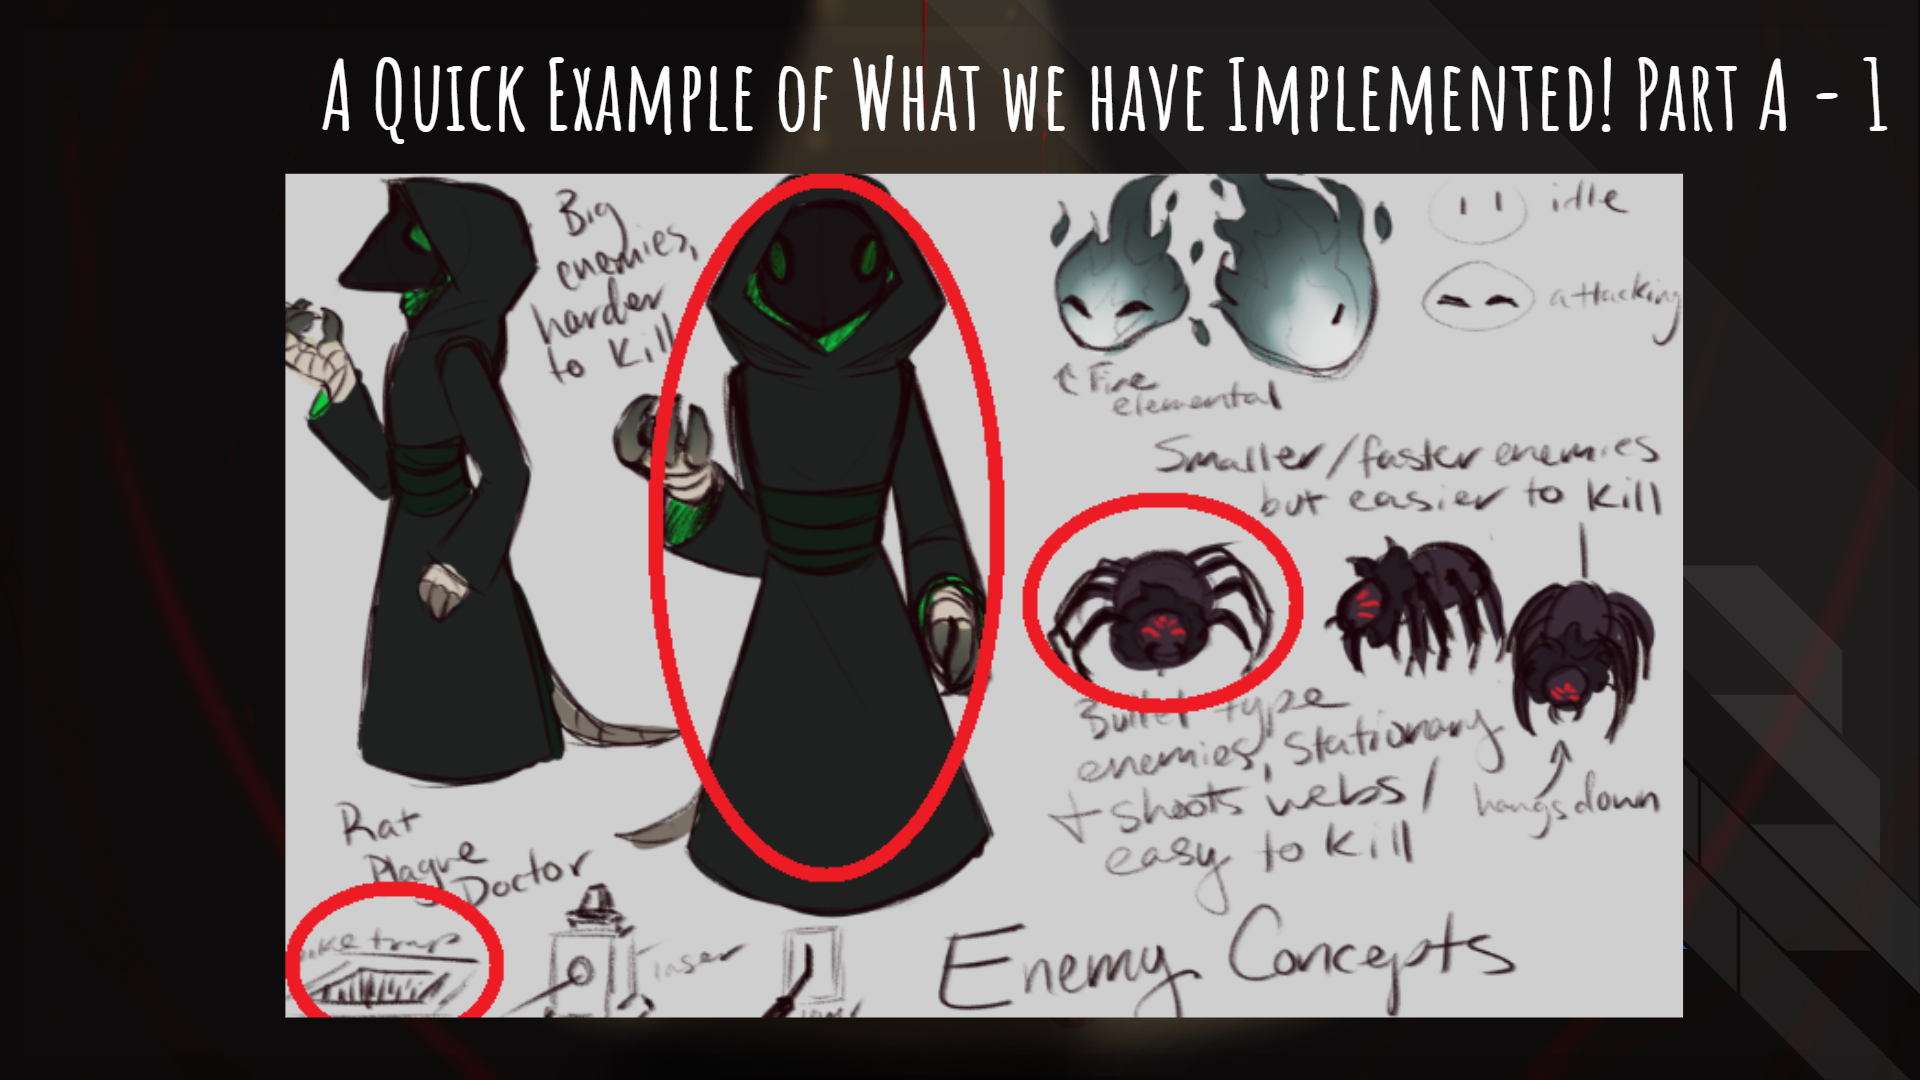 A Quick Example of What we have Implemented! Part A - 1
Big
enemies,
harder
to kill
idle
attacking
↑ Fire
elemental
Smaller/faster enemies
but easier to kill
Bullet type
enemies, stationary
+ shoots webs/
easy to kill
hangs down
Rat
Plague
Doctor
trap
laser
Enemy Concepts